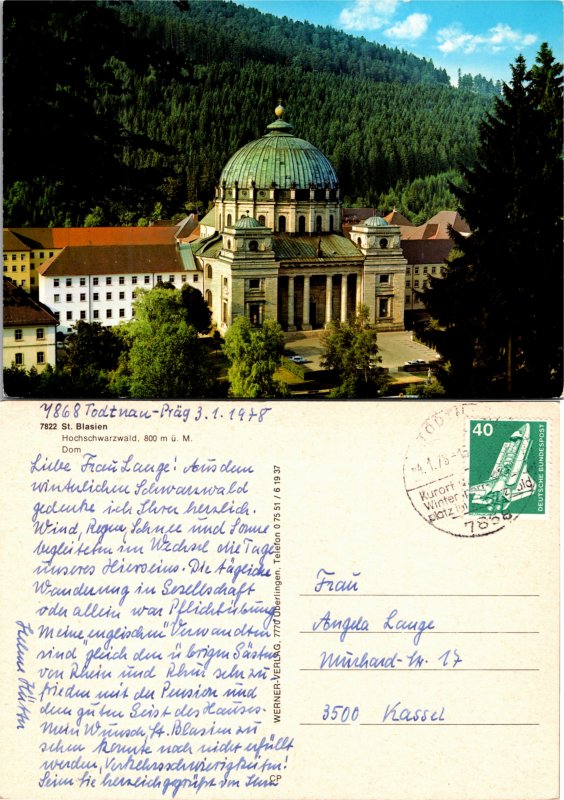 7868 Todtnau-Präg 3.1.1978
7822 St. Blasien
Hochschwarzwald, 800 m ü. M.
Dom
Liebe Frau Lange! Aus dem
winterlichen Schwarzwald
gedenke ich Ihrer herzlich.
Wind, Regen, Schnee und Sonne
begleiteten im Wechsel die Tage
unseres Hierseins. Die tägliche
Wanderung in Gesellschaft
oder allein war Pflichtübung
Meine "englischen" Verwandten
sind gleich den übrigen Gästen
von Rhein und Ruhr sehr zu-
frieden mit der Pension und
dem guten Geist des Hauses.
Mein Wunsch, St. Blasien zu
sehen konnte noch nicht erfüllt
werden, Verkehrsschwierigkeiten!
Seien Sie herzlich gegrüßt von Ihrer
WERNER-VERLAG, 7770 Überlingen, Telefon 0 75 51 / 6 19 37
CP
TODTNAU
1.78
Kurort
Winter
platz
7868
40
DEUTSCHE BUNDESPOST
Frau
Angela Lange
Murhard-Str. 17
3500 Kassel